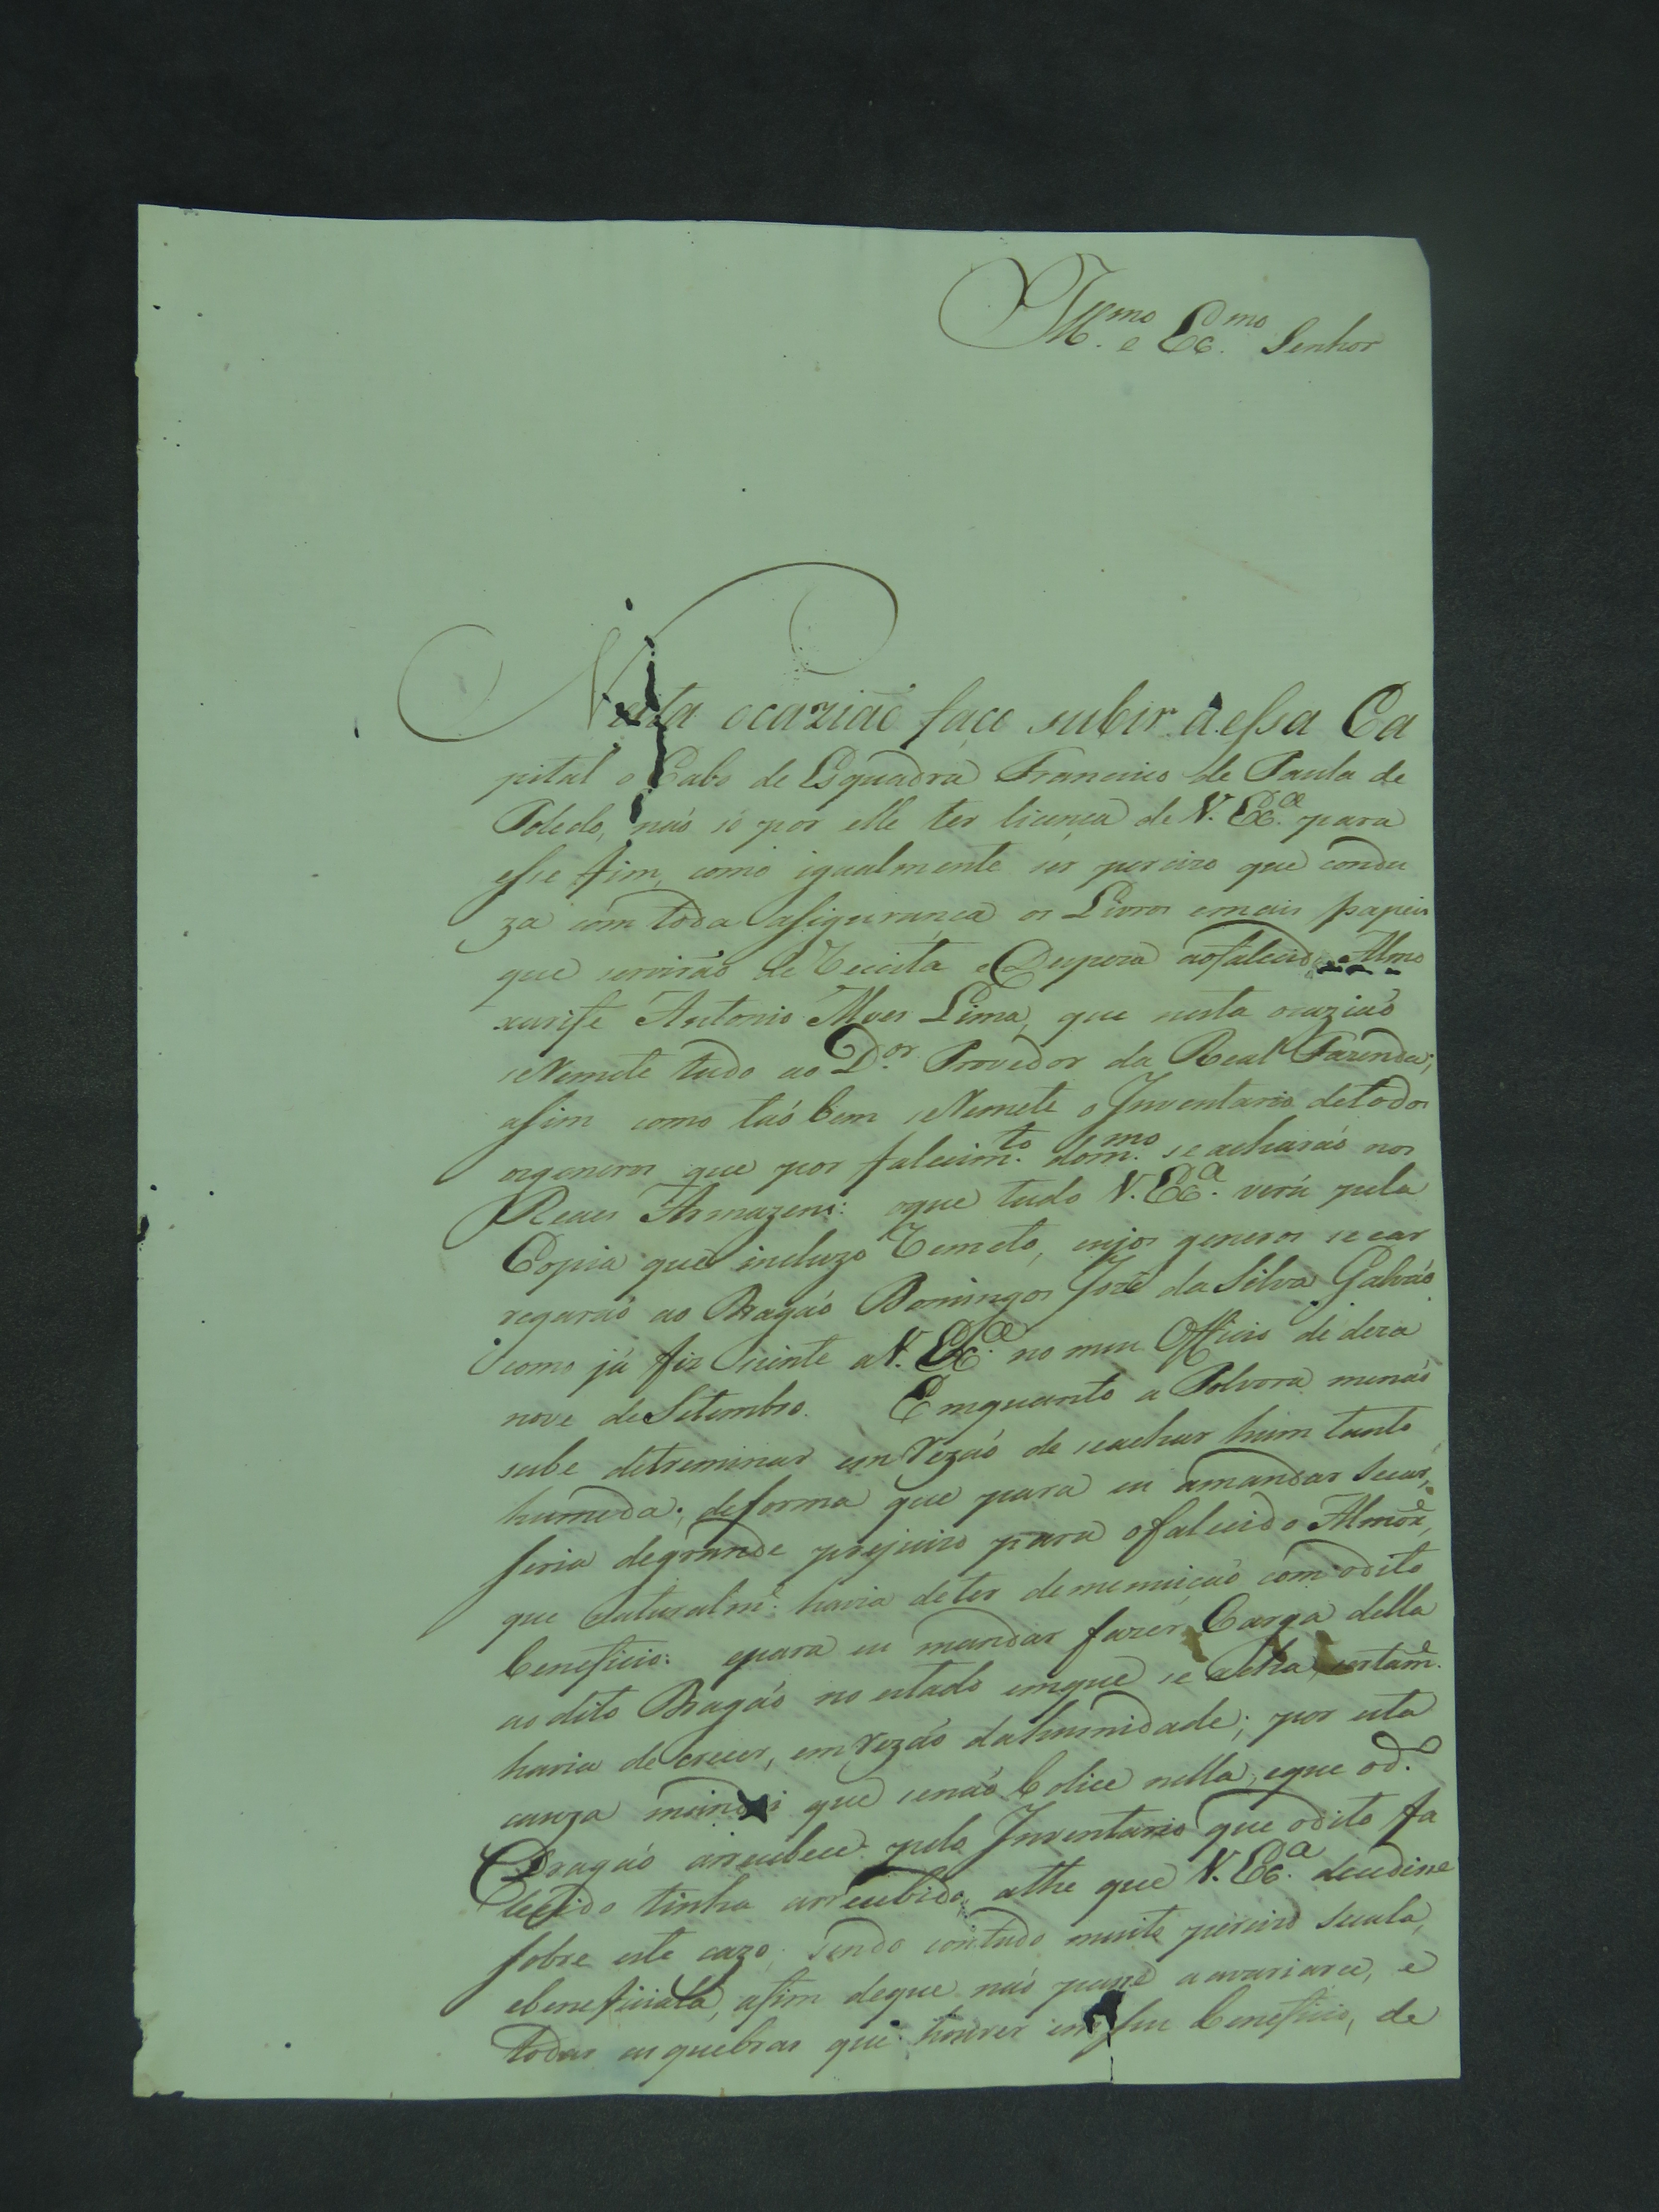 Ill.mo e Ex.mo Senhor
Nesta ocazião faço subir a essa Ca
pital o Cabo de Esquadra Francisco de Paula de
Toledo, não só por elle ter licença de V. Ex.ca para
esse fim, como igualmente ser percizo que condu
za com toda asigurança os Livros emais papeis
que servirão de Receita e Despeza aofalecido Almo
xarife Antonio Alves Lima, que nesta ocazião
seRemete tudo ao D.or Provedor da Real Fazenda,
asim como tão bem seRemete o Inventario detodos
osgeneros que por falecim.to dom.mo se acharão nos
Reaes Armazens: oque tudo V. Ex.a verá pela
Copia que incluzo Remeto, cujos generos se car
regarão ao Dragão Domingos Joze da Silva Galvão
como já fiz sciente a V. Ex.ca no meu Officio de deza
nove de Setembro. Emquanto a Polvora menão
sube detreminar em rezão de seachar hum tanto
humeda; deforma que para eu amandar secar,
seria degrande prejuizo para ofalecido Almox.e,
que naturalm.e havia deter demenuição com odito
beneficio: epara eu mandar fazer Carga della
ao dito Dragão no estado emque se acha, certam.e
havia de crecer, em rezão dahumidade; por esta
cauza mandei que senão bolice nella, eque od.o
Dragão arrecebece pelo Inventario que odito fa
lecido tinha arrecebido, athe que V. Ex.a decidice
sobre este cazo; sendo contudo muito percizo secala,
ebeneficiala, afim deque não pase a avariarce, e
todas as quebras que houver em seu beneficio, de